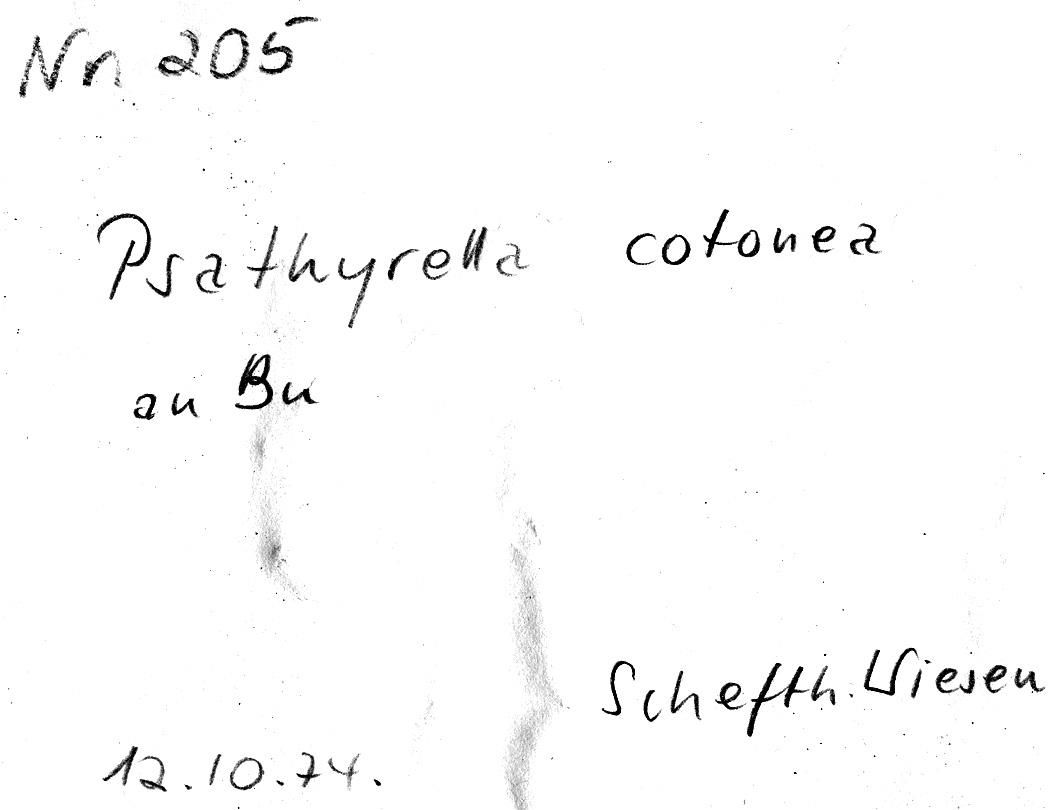 Nr 205
Psathyrella cotonea
an Bu
Schefth. Wiesen
12.10.74.